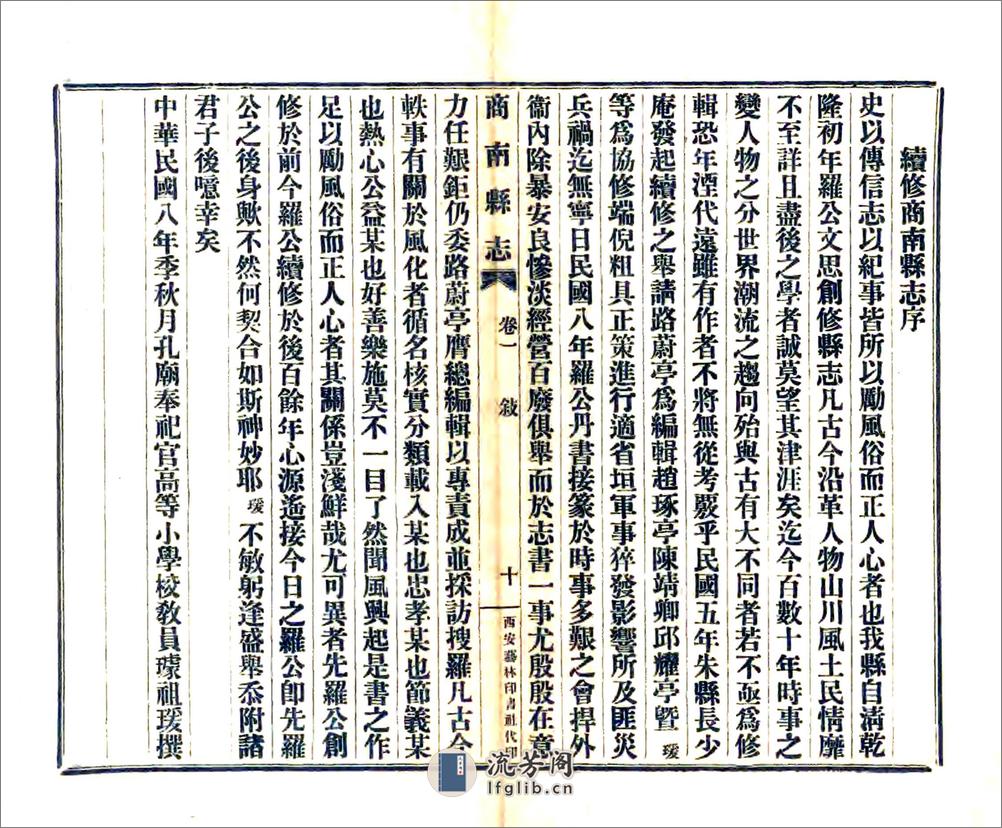 續修商南縣志序
史以傳信志以紀事皆所以勵風俗而正人心者也我縣自淸乾
隆初年羅公文思創修縣志凡古今沿革人物山川風土民情靡
不至詳且盡後之學者誠莫望其津涯矣迄今百數十年時事之
變人物之分世界潮流之趨向殆與古有大不同者若不亟爲修
輯恐年湮代遠雖有作者不將無從考覈乎民國五年朱縣長少
庵發起續修之舉請路蔚亭爲編輯趙琢亭陳靖卿邱耀亭曁瑗
等爲協修端倪粗具正策進行適省垣軍事猝發影響所及匪災
兵禍迄無寧日民國八年羅公丹書接篆於時事多艱之會捍外
衞內除暴安良慘淡經營百廢俱舉而於志書一事尤殷殷在意
商南縣志 卷一 敍 十 西安藝林印書社代印
力任艱鉅仍委路蔚亭膺總編輯以專責成並採訪搜羅凡古今
軼事有關於風化者循名核實分類載入某也忠孝某也節義某
也熱心公益某也好善樂施莫不一目了然聞風興起是書之作
足以勵風俗而正人心者其關係豈淺鮮哉尤可異者先羅公創
修於前今羅公續修於後百餘年心源遙接今日之羅公卽先羅
公之後身歟不然何契合如斯神妙耶瑗不敏躬逢盛舉忝附諸
君子後噫幸矣
中華民國八年季秋月孔廟奉祀官高等小學校敎員璩祖瑗撰
流芳阁
lfglib.cn